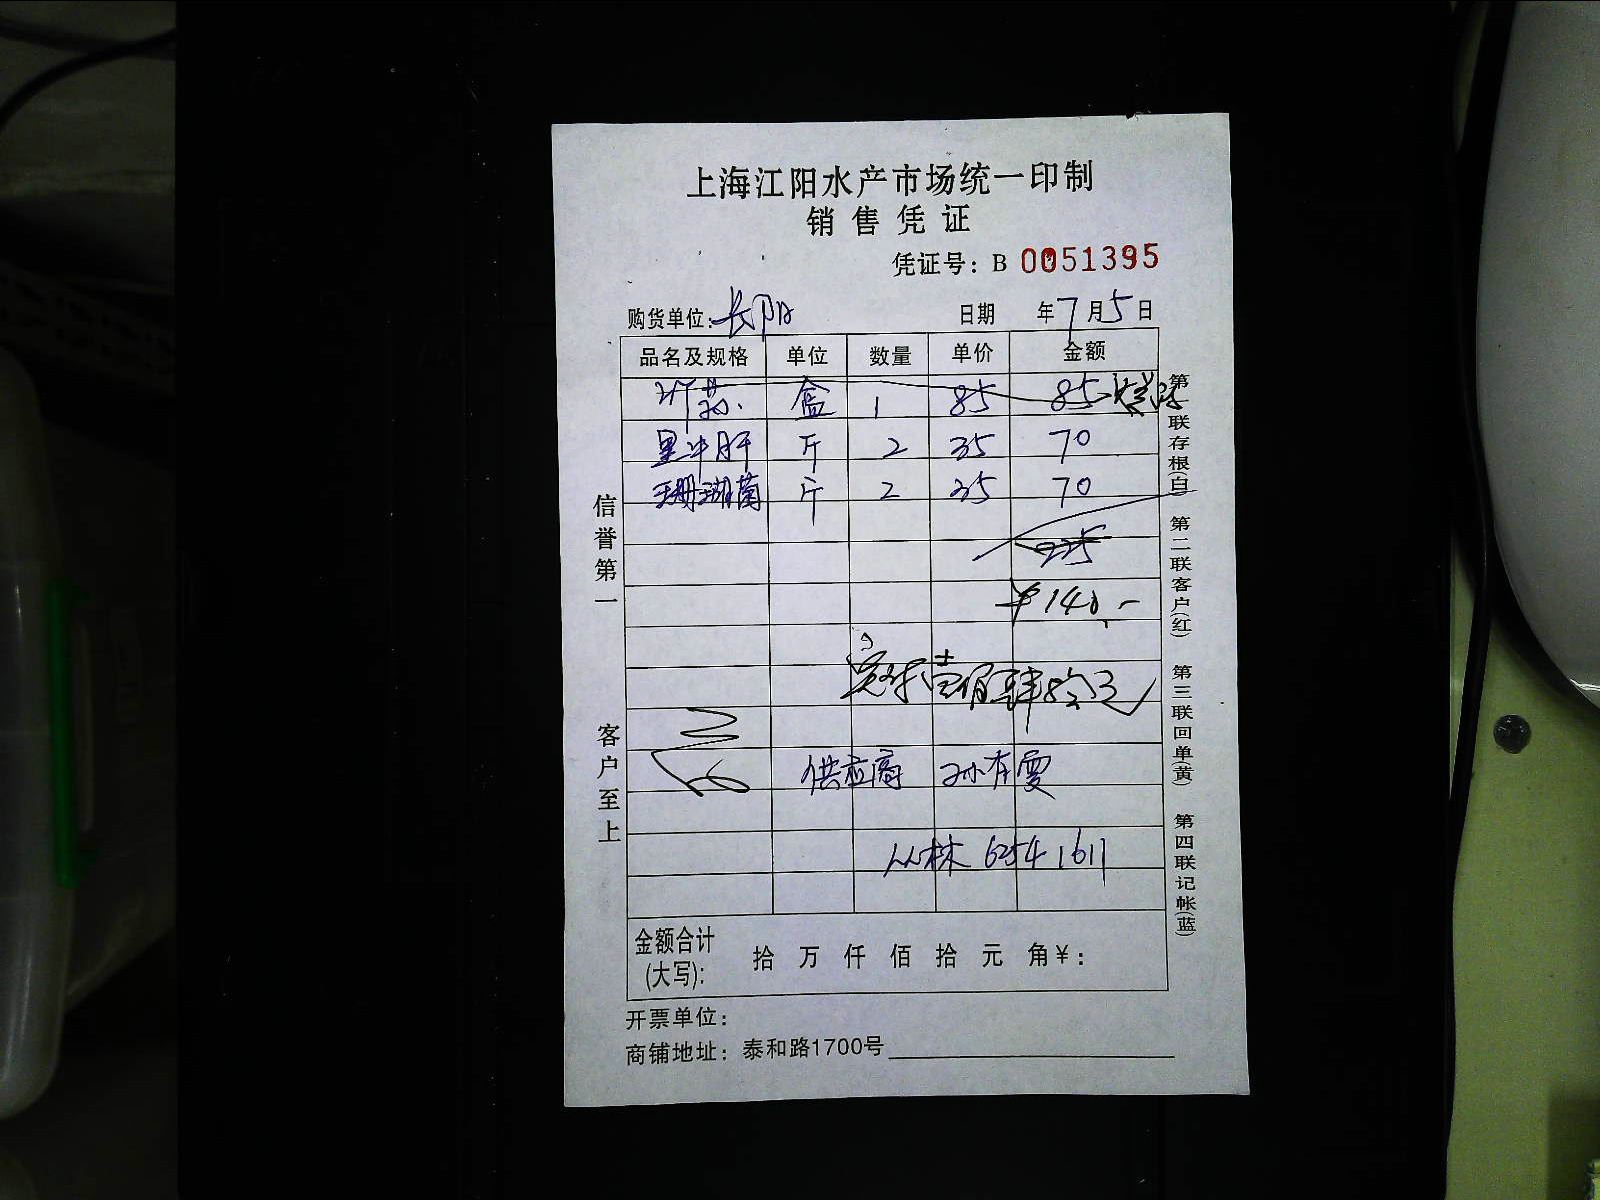 上海江阳水产市场统一印制
销售凭证
凭证号：B 0051395
购货单位：长阳 日期 年7月5日
品名及规格 单位 数量 单价 金额
苏 盒 1 85 85
黑牛肝 斤 2 35 70
珊瑚菌 斤 2 35 70
225
￥140.-
实收壹佰肆拾元
供应商 孙有雯
丛林 62541611
金额合计 拾 万 仟 佰 拾 元 角￥：
(大写)：
开票单位：
商铺地址：泰和路1700号
信誉第一
客户至上
第一联存根(白) 第二联客户(红) 第三联回单(黄) 第四联记帐(蓝)